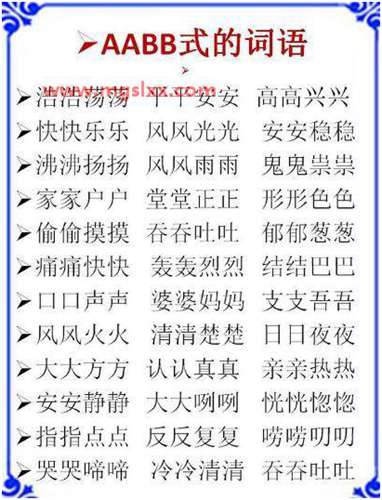 ➢AABB式的词语
➢
www.mgslxx.com
➢浩浩荡荡 平平安安 高高兴兴
➢快快乐乐 风风光光 安安稳稳
➢沸沸扬扬 风风雨雨 鬼鬼祟祟
➢家家户户 堂堂正正 形形色色
➢偷偷摸摸 吞吞吐吐 郁郁葱葱
➢痛痛快快 轰轰烈烈 结结巴巴
➢口口声声 婆婆妈妈 支支吾吾
➢风风火火 清清楚楚 日日夜夜
➢大大方方 认认真真 亲亲热热
➢安安静静 大大咧咧 恍恍惚惚
➢指指点点 反反复复 唠唠叨叨
➢哭哭啼啼 冷冷清清 吞吞吐吐